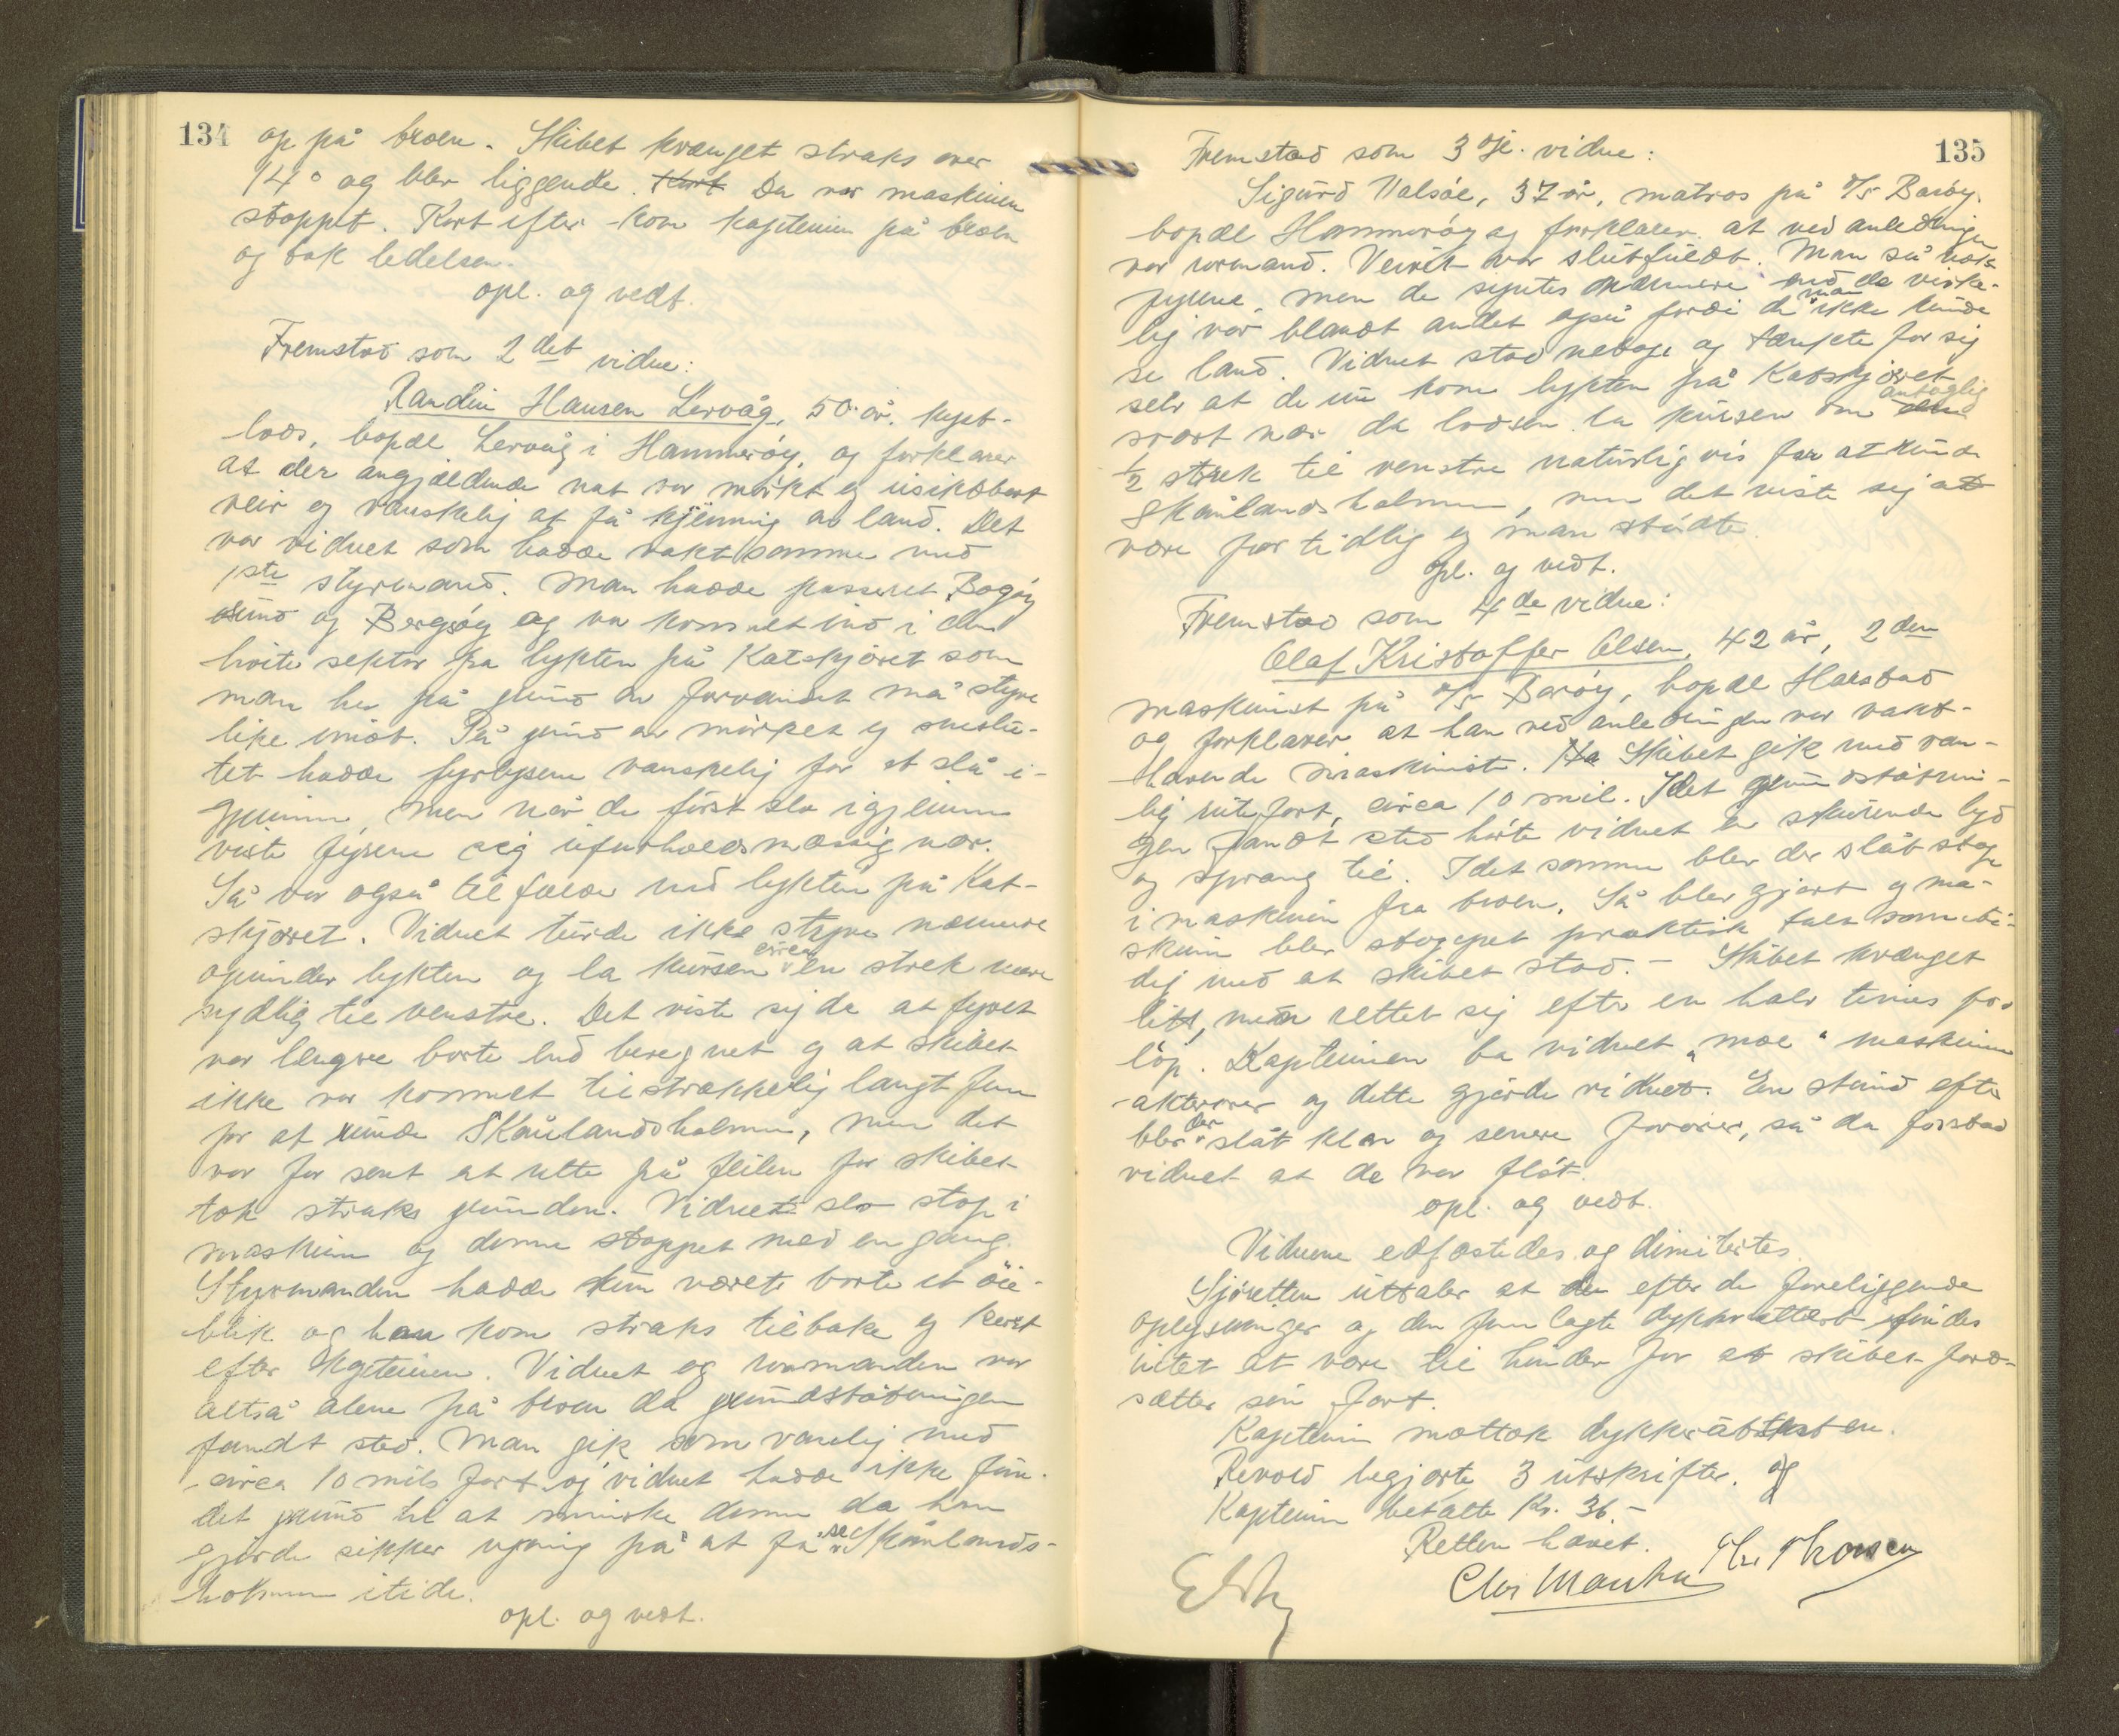 134
op på broen. Skibet krænget straks over
14° og blev liggende. Kort Da var maskinen
stoppet. Kort efter kom kapteinen på broen
og tok ledelsen.
opl. og vedt.
Fremstod som 2det vidne:
Randin Hansen Lervåg, 50 år, kyst-
lods, bopæl Lervåg i Hammerøy, og forklarer
at der angjældende nat var mørkt og usiktbart
veir og vanskelig at få kjenning av land. Det
var vidnet som hadde vakt sammen med
1ste styrmand. Man hadde passeret Bogøy
sund og Bergsøy og var kommet ind i den
hvite sektor fra lykten på Katskjæret som
man her på grund av farvandet må styre
like imot. På grund av mørket og sneslu-
tet hadde fyrlysene vanskelig for at slå i-
gjennem, men når de først slo igjennem
viste fyrene sig uforholdsmæssig nær.
Så var også tilfælde med lykten på Kat-
skjæret. Vidnet turde ikke styre nærmere
opunder lykten og la kursen circa en strek mere
sydlig til venstre. Det viste sig da at fyret
var længere borte end beregnet og at skibet
ikke var kommet tilstrækkelig langt frem
for at runde Skånlandsholmen, men det
var for sent at rette på feilen for skibet
tok straks grunden. Vidnet slo stop i
maskinen og denne stoppet med en gang.
Styrmanden hadde kun været borte et øie-
blik og han kom straks tilbake og
efter kapteinen. Vidnet og rormanden var
altså alene på broen da grundstøtningen
fandt sted. Man gik som vanlig med
circa 10 mils fart og vidnet hadde ikke fun-
det grund til at minske denne da han
gjorde sikker regning på at få se Skånlands-
holmen itide.
opl. og vedt.
135
Fremstod som 3dje vidne:
Sigurd Valsøe, 37 år, matros på D/S Barøy,
bopæl Hammerøy og forklarer at ved anledningen
var rormand. Veiret var slutfuldt. Man så nok
fyrene, men de syntes nærmere end de virke-
lig var blandt andet også fordi man ikke kunde
se land. Vidnet stod netop og tænkte for sig
selv at de nu kom lykten på Katskjæret
svært nær da lodsen la kursen om antaglig
1/2 strek til venstre naturligvis for at runde
Skånlandsholmen, men det viste sig at
være for tidlig og man støtte.
opl. og vedt.
Fremstod som 4de vidne:
Olaf Kristoffer Olsen, 42 år, 2den
maskinist på D/S Barøy, bopæl Harstad
og forklarer at han ved anledningen var vakt-
havende maskinist. Ha Skibet gik med van-
lig rutefart, circa 10 mil. Idet grundstøtnin-
gen fandt sted hørte vidnet en skurende lyd
og sprang til. Idet samme blev der slåt stop
i maskinen fra broen. Så blev gjort og ma-
skinen blev stoppet praktisk talt samti-
dig med at skibet stod. — Skibet krænget
litt, men rettet sig efter en halv times for-
løp. Kapteinen ba vidnet "møe" maskinen
akterover og dette gjorde vidnet. En stund efter
blev der slåt klar og senere forover, så da forstod
vidnet at de var flot.
opl. og vedt.
Vidnene edfæstedes og dimitertes.
Sjøretten uttaler at der efter de foreliggende
oplysninger og den fremlagte dykkerattest findes
intet at være til hinder for at skibet fort-
sætter sin fart.
Kaptein mottok dykkerattesten.
Revold begjærte 3 utskrifter. og
Kaptein betalte Kr. 36.—
Retten hævet.